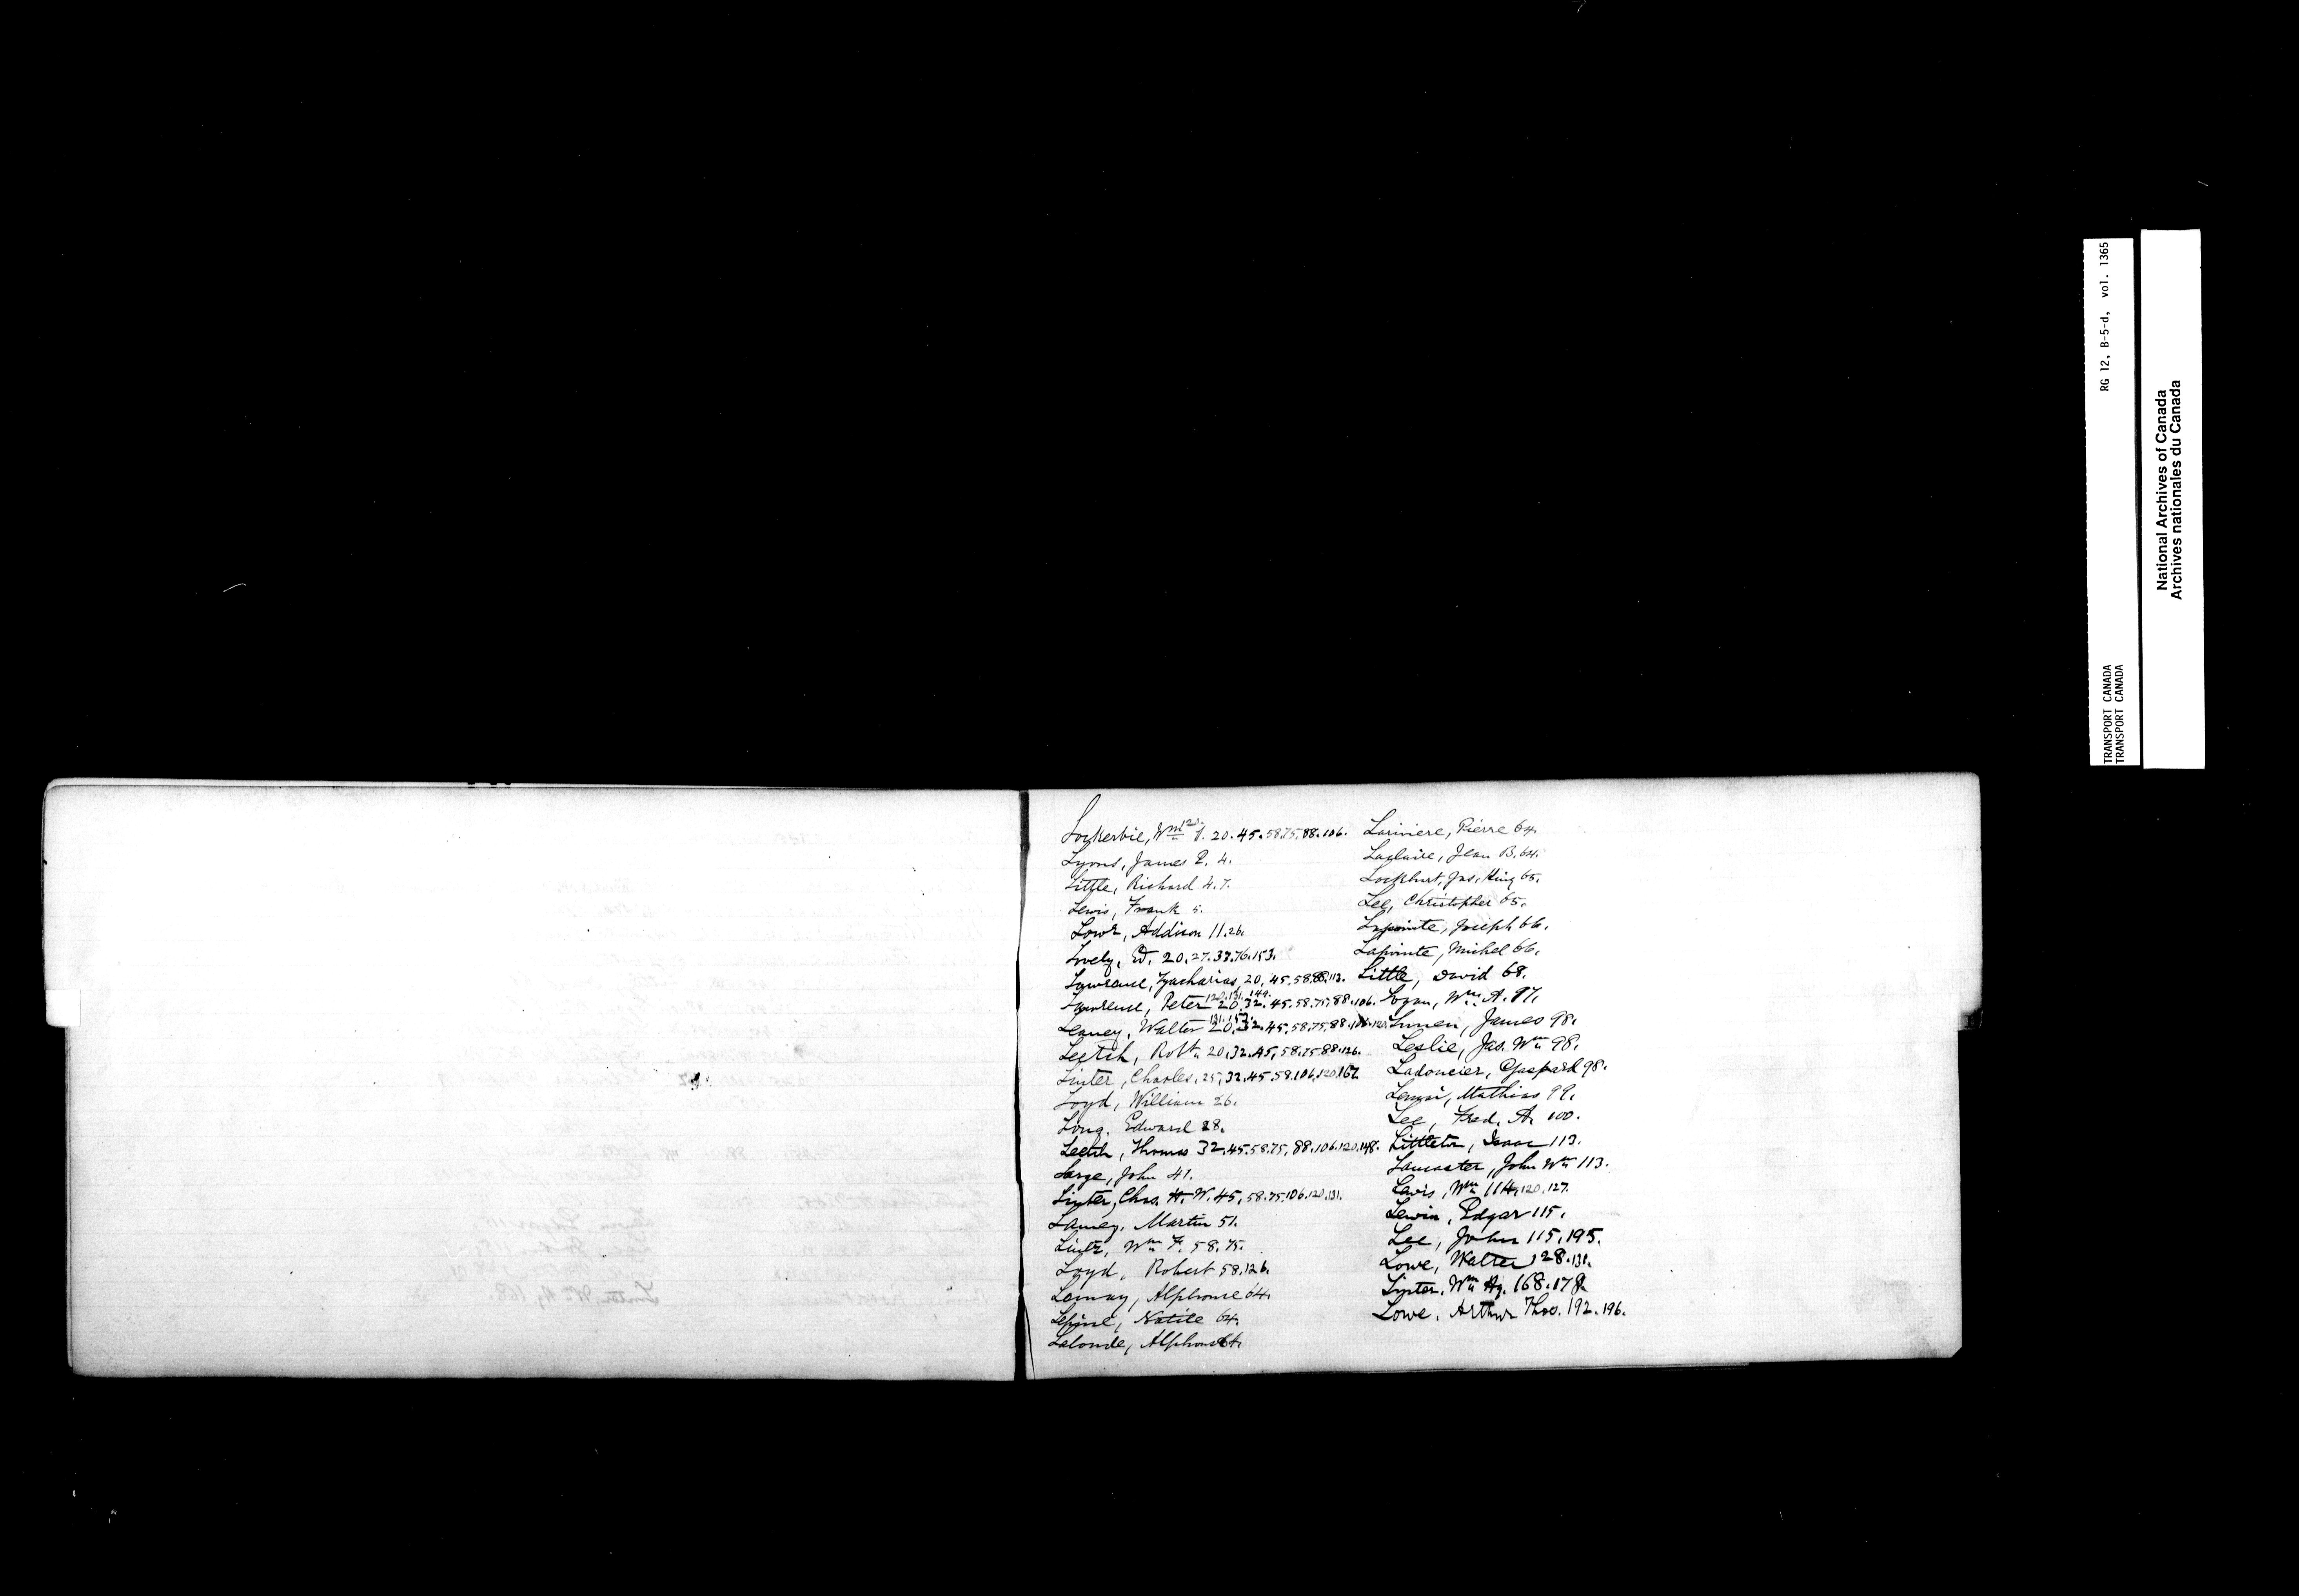 Lockerbie, Wm J. 20. 45. 58. 75. 88. 106.
Lyons, James P. 4.
Little, Richard 4. 7.
Lewis, Frank 5.
Lowe, Addison 11. 26.
Lovely, Ed. 20. 27. 37. 76. 153.
Lawrence, Zacharias, 20, 45. 58. 88. 113.
120. 131. 149.
Lawrence, Peter 20. 32. 45. 58. 75. 88. 106.
131. 157.
Leaney, Walter 20. 32. 45. 58. 75. 88. 106. 120.
Leetch, Robt. 20. 32. 45. 58. 75. 88. 126.
Linter, Charles, 25, 32. 45. 58. 106. 120. 167.
Loyd, William 26.
Long, Edward 28.
Leetch, Thomas 32. 45. 58. 75. 88. 106. 120. 148.
Large, John 41.
Linter, Chas. H. W. 45, 58. 75. 106. 120. 131.
Lamey, Martin 51.
Lintz, Wm F. 58. 75.
Loyd, Robert 58. 126.
Lamay, Alphonse 64.
Lépine, 64.
Lalonde, Alphonse 64.
Lariviere, Pierre 64.
Laclaire, Jean B. 64.
Lockhart, Jas. King 65.
Lee, Christopher 65.
Lapointe, Joseph 66.
Lapointe, Michel 66.
Little, David 68.
Logan, Wm A. 97.
James 98.
Leslie, Jas. Wm 98.
Ladoucier, Gaspard 98.
Mathias 99.
Lee, Fred. A. 100.
Littleton, Isaac 113.
Lancaster, John Wm 113.
Lewis, Wm 114, 120. 127.
Lewin, Edgar 115.
Lee, John 115. 195.
Lowe, Walter 128. 131.
Linter, Wm Hy. 168. 178.
Lowe, Arthur Thos. 192. 196.
RG 12, B-5-d, vol. 1365
TRANSPORT CANADA
TRANSPORT CANADA
National Archives of Canada
Archives nationales du Canada